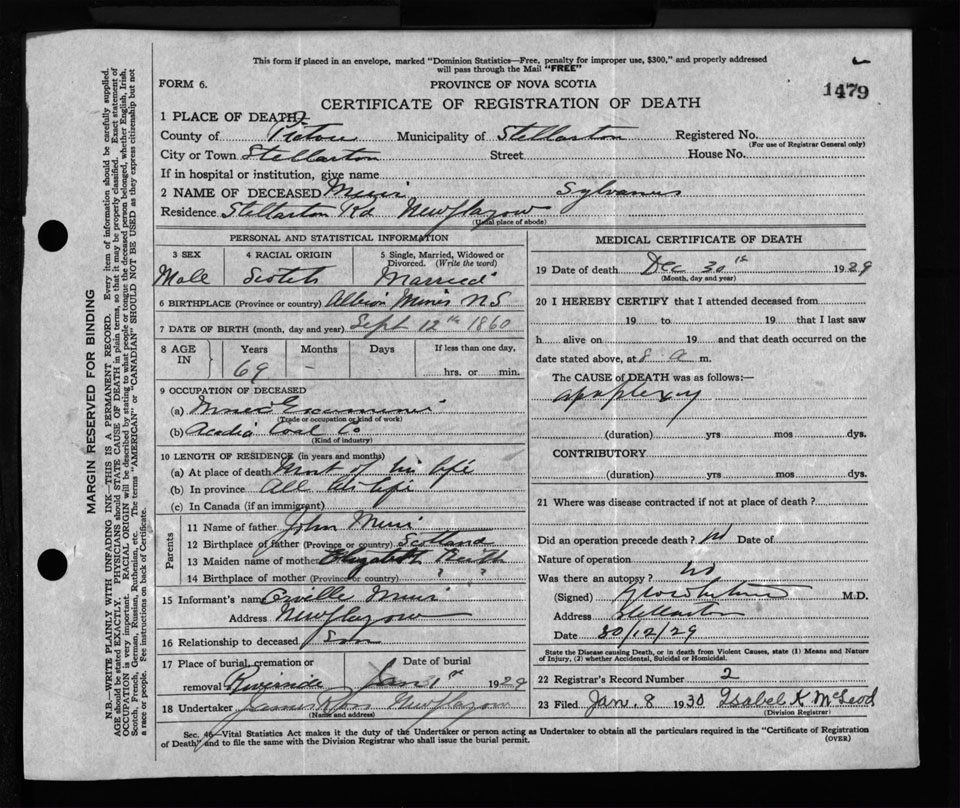 This form if placed in an envelope, marked "Dominion Statistics—Free, penalty for improper use, $300," and properly addressed
will pass through the Mail "FREE"
FORM 6.
PROVINCE OF NOVA SCOTIA
1479
CERTIFICATE OF REGISTRATION OF DEATH
1 PLACE OF DEATH
County of Pictou Municipality of Stellarton Registered No.
(For use of Registrar General only)
City or Town Stellarton Street House No.
If in hospital or institution, give name
2 NAME OF DECEASED Muir Sylvanus
Residence Stellarton Rd New Glasgow
(Usual place of abode)
PERSONAL AND STATISTICAL INFORMATION
3 SEX 4 RACIAL ORIGIN 5 Single, Married, Widowed or
Divorced. (Write the word)
Male Scotch Married
6 BIRTHPLACE (Province or country) Albion Mines N S
7 DATE OF BIRTH (month, day and year) Sept 12th 1860
8 AGE IN Years Months Days If less than one day,
69 - hrs. or min.
9 OCCUPATION OF DECEASED
(a) Mines Examiner
(Trade or occupation or kind of work)
(b) Acadia Coal Co
(Kind of industry)
10 LENGTH OF RESIDENCE (in years and months)
(a) At place of death Most of his life
(b) In province All his life
(c) In Canada (if an immigrant)
Parents
11 Name of father John Muir
12 Birthplace of father (Province or country) Scotland
13 Maiden name of mother Elizabeth
14 Birthplace of mother (Province or country) ? ?
15 Informant's name Orville Muir
Address New Glasgow
16 Relationship to deceased Son
17 Place of burial, cremation or
removal Riverside
Date of burial
Jan 1st 1929
18 Undertaker James Ross New Glasgow
(Name and address)
MEDICAL CERTIFICATE OF DEATH
19 Date of death Dec 30th 1929
(Month, day and year)
20 I HEREBY CERTIFY that I attended deceased from
19 to 19 that I last saw
h alive on 19 and that death occurred on the
date stated above, at 8 a m.
The CAUSE of DEATH was as follows:—
apoplexy
(duration) yrs mos dys.
CONTRIBUTORY
(duration) yrs mos dys.
21 Where was disease contracted if not at place of death?
Did an operation precede death? No Date of
Nature of operation
Was there an autopsy? No
(Signed) M.D.
Address Stellarton
Date 30/12/29
State the Disease causing Death, or in death from Violent Causes, state (1) Means and Nature
of Injury, (2) whether Accidental, Suicidal or Homicidal.
22 Registrar's Record Number 2
23 Filed Jan. 8 1930 Isabel K McLeod
(Division Registrar)
Sec. 46—Vital Statistics Act makes it the duty of the Undertaker or person acting as Undertaker to obtain all the particulars required in the "Certificate of Registration
of Death" and to file the same with the Division Registrar who shall issue the burial permit.
(OVER)
MARGIN RESERVED FOR BINDING
N.B.—WRITE PLAINLY WITH UNFADING INK—THIS IS A PERMANENT RECORD. Every item of information should be carefully supplied.
AGE should be stated EXACTLY. PHYSICIANS should STATE CAUSE OF DEATH in plain terms, so that it may be properly classified. Exact statement of
OCCUPATION is very important. RACIAL ORIGIN will be described by stating to what people or tongue the deceased person belonged, whether English, Irish,
Scotch, French, German, Russian, Ruthenian, etc. The terms "AMERICAN" or "CANADIAN" SHOULD NOT BE USED as they express citizenship but not
a race or people. Fee instructions on back of Certificate.